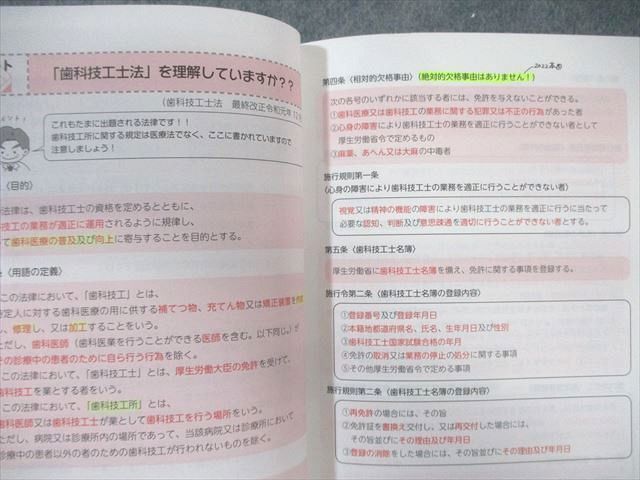 ント
「歯科技工士法」を理解していますか??
(歯科技工士法 最終改正令和元年12
メント!
これもたまに出題される法律です!!
歯科技工所に関する規定は医療法でなく、ここに書かれていますので
注意しましょう!
〈目的〉
法律は、歯科技工士の資格を定めるとともに、
技工の業務が適正に運用されるように規律し、
て歯科医療の普及及び向上に寄与することを目的とする。
条〈用語の定義〉
この法律において、「歯科技工」とは、
定人に対する歯科医療の用に供する補てつ物、充てん物又は矯正装置を作
し、修理し、又は加工することをいう。
だし、歯科医師(歯科医業を行うことができる医師を含む。以下同じ。)が
その診療中の患者のために自ら行う行為を除く。
この法律において、「歯科技工士」とは、厚生労働大臣の免許を受けて、
科技工を業とする者をいう。
この法律において、「歯科技工所」とは、
科医師又は歯科技工士が業として歯科技工を行う場所をいう。
ただし、病院又は診療所内の場所であって、当該病院又は診療所において
診療中の患者以外の者のための歯科技工が行われないものを除く。
2022年
第四条〈相対的欠格事由〉(絶対的欠格事由はありません!)
次の各号のいずれかに該当する者には、免許を与えないことができる。
①歯科医療又は歯科技工の業務に関する犯罪又は不正の行為があった者
②心身の障害により歯科技工士の業務を適正に行うことができない者として
厚生労働省令で定めるもの
③麻薬、あへん又は大麻の中毒者
施行規則第一条
〈心身の障害により歯科技工士の業務を適正に行うことができない者〉
視覚又は精神の機能の障害により歯科技工士の業務を適正に行うに当たって
必要な認知、判断及び意思疎通を適切に行うことができない者とする。
第五条〈歯科技工士名簿〉
厚生労働省に歯科技工士名簿を備え、免許に関する事項を登録する。
施行令第二条〈歯科技工士名簿の登録内容〉
①登録番号及び登録年月日
②本籍地都道府県名、氏名、生年月日及び性別
③歯科技工士国家試験合格の年月
④免許の取消又は業務の停止の処分に関する事項
⑤その他厚生労働省令で定める事項
施行規則第二条〈歯科技工士名簿の登録内容〉
①再免許の場合には、その旨
②免許証を書換え交付し、又は再交付した場合には、
その旨並びにその理由及び年月日
③登録の消除をした場合には、その旨並びにその理由及び年月日